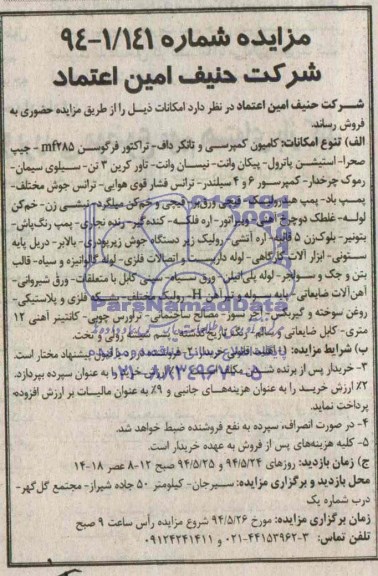 مزایده شماره ۹۴-۱/۱۴۱
شرکت حنیف امین اعتماد
شرکت حنیف امین اعتماد در نظر دارد امکانات ذیل را از طریق مزایده حضوری به
فروش رساند.
الف) تنوع امکانات: کامیون کمپرسی و تانکر داف- تراکتور فرگوسن mf۲۸۵ - جیپ
صحرا- استیشن پاترول- پیکان وانت- نیسان وانت- تاور کرین ۳ تن- سیلوی سیمان-
رموک چرخدار- کمپرسور ۶ و ۴ سیلندر- ترانس فشار قوی هوایی- ترانس جوش مختلف-
پمپ باد- پمپ هیدرولیک- قیچی ورق‌بر- قیچی و خم‌کن میلگرد- نبشی زن- خم‌کن
لوله- غلطک دوچرخ آهنی- ویبراتور- اره فلکه- کنده گیر- رنده نجاری- پمپ رنگ‌پاش-
پتونیر- بلوک‌زن ۵ قالبه- اره آتشی- رولیک زیر دستگاه جوش زیرپودری- بالابر- دریل پایه
ستونی- ابزار آلات کارگاهی- لوله داربست و اتصالات فلزی- لوله گالوانیزه و سیاه- قالب
بتن و جک و سولجر- لوله پلی‌اتیلن- ورق سیاه- سینی کابل با متعلقات- ورق شیروانی-
آهن‌آلات ضایعاتی- پایه آهن H- رولیک مختلف- بشکه فلزی و پلاستیکی-
روغن سوخته و گیربکس- آجر نسوز- مصالح ساختمانی- تراورس چوبی- کانتینر آهنی ۱۲
متری- کابل ضایعاتی و سالم- رنگ تاریخ گذشته- پشم شیشه رولی و تخت.
ParsNamadData
۰۲۱-۸۸۳۴۹۶۷۰-۵
ب) شرایط مزایده: ۱- خریدار ۲- فروشنده در رد یا قبول پیشنهاد مختار است.
۳- خریدار پس از برنده به عنوان سپرده بپردازد.
۲٪ ارزش خرید را به عنوان هزینه‌های جانبی و ۹٪ به عنوان مالیات بر ارزش افزوده
پرداخت نماید.
۴- در صورت انصراف، سپرده به نفع فروشنده ضبط خواهد شد.
۵- کلیه هزینه‌های پس از فروش به عهده خریدار است.
ج) زمان بازدید: روزهای ۹۴/۵/۲۴ و ۹۴/۵/۲۵ صبح ۱۲-۸ عصر ۱۸-۱۴
محل بازدید و برگزاری مزایده: سیرجان- کیلومتر ۵۰ جاده شیراز- مجتمع گل‌گهر-
درب شماره یک
زمان برگزاری مزایده: مورخ ۹۴/۵/۲۶ شروع مزایده رأس ساعت ۹ صبح
تلفن تماس: ۳-۴۴۱۵۳۹۶۲-۰۲۱ و ۰۹۱۲۴۲۴۱۴۱۱